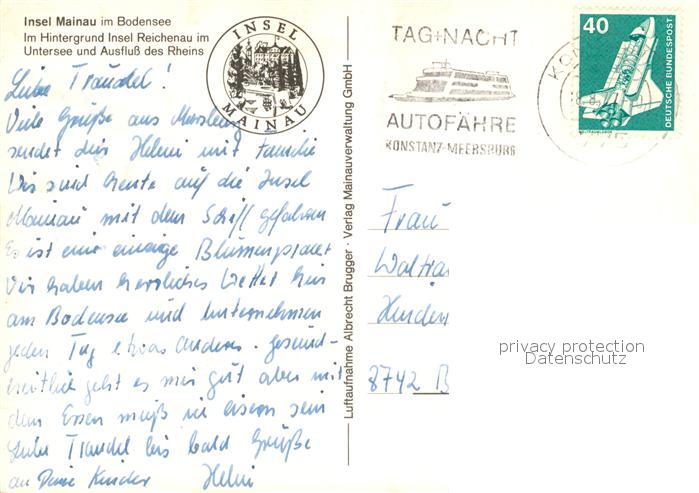 Insel Mainau im Bodensee
Im Hintergrund Insel Reichenau im
Untersee und Ausfluß des Rheins
INSEL
MAINAU
TAG+NACHT
AUTOFÄHRE
KONSTANZ-MEERSBURG
40
DEUTSCHE BUNDESPOST
Liebe Traudel!
Viele Grüße aus
sendet dir Helmi mit Familie
Wir sind heute auf die Insel
Mainau mit dem Schiff gefahren
Es ist eine einzige
Wir haben herrliches Wetter hier
am Bodensee und unternehmen
jeden Tag etwas anderes. Gesund-
heitlich geht es mir gut aber mit
dem Essen muß ich eisern sein
Liebe Traudel bis bald Grüße
an Deine Kinder Helmi
Luftaufnahme Albrecht Brugger · Verlag Mainauverwaltung GmbH
Frau
Waltra
8742 B
privacy protection
Datenschutz